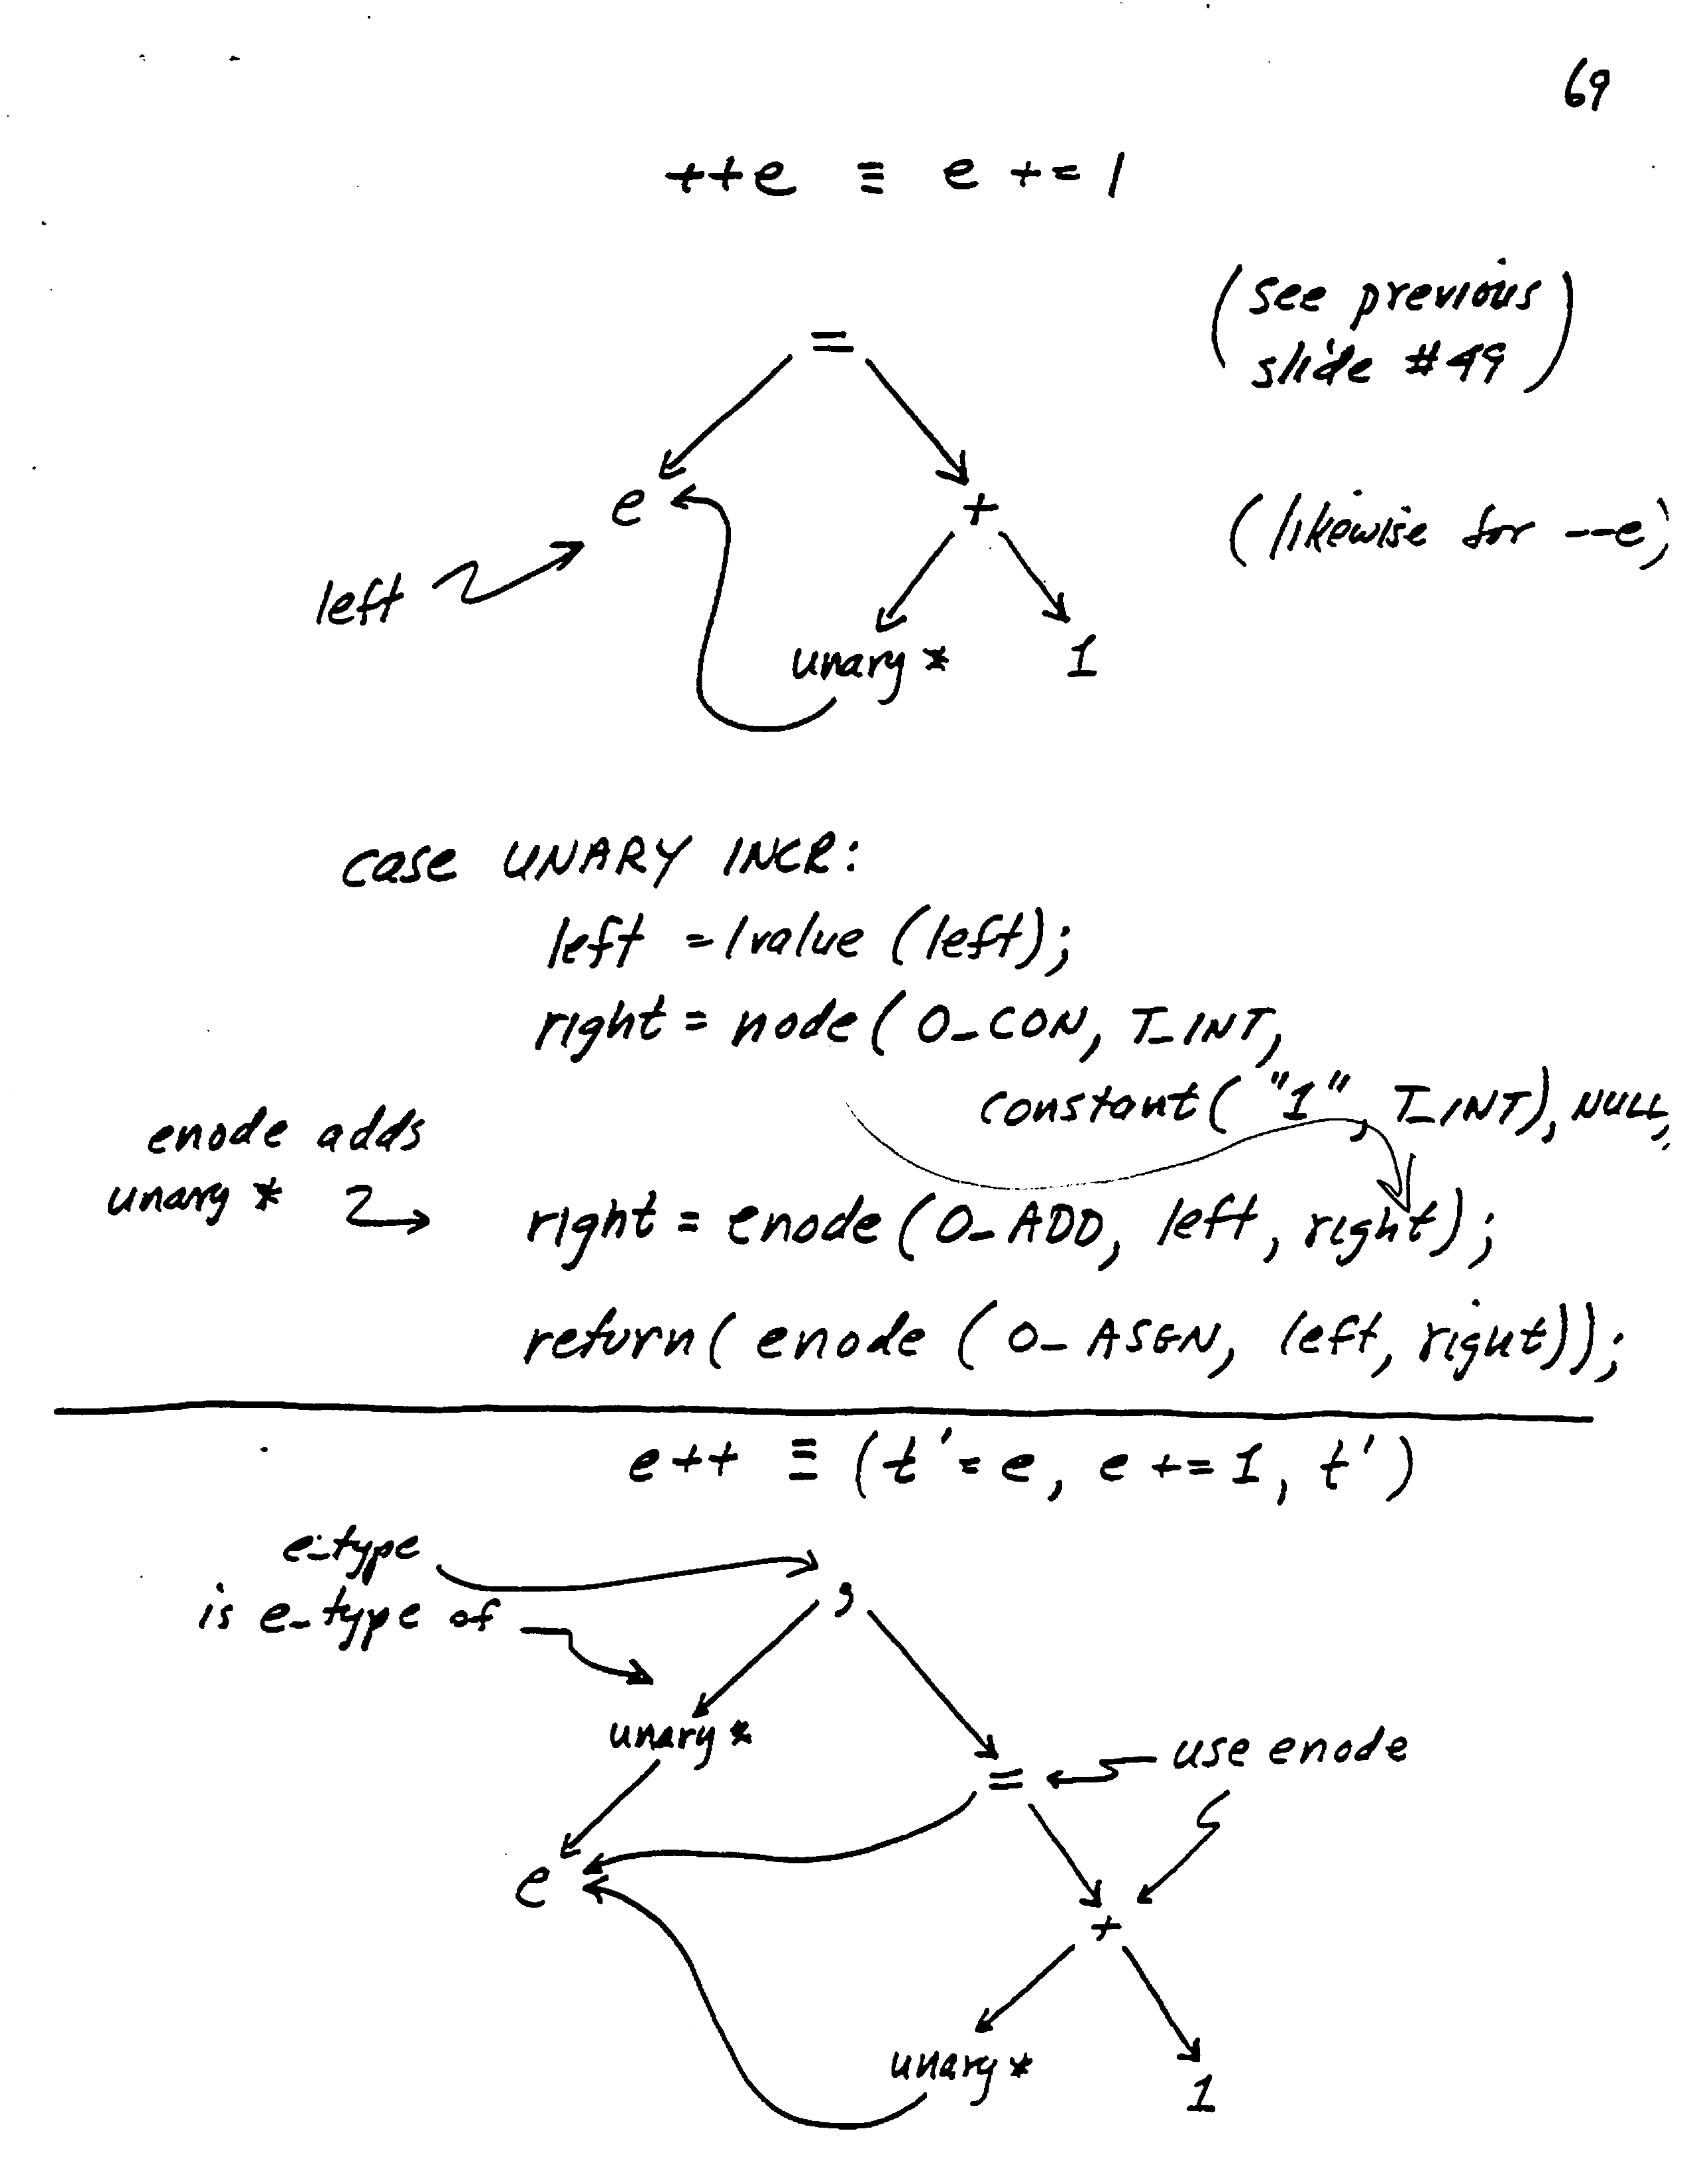 69
++e ≡ e += 1
(see previous
slide #49)
=
e
+
(likewise for --e)
left
unary *
1
case UNARY INCR:
left = lvalue (left);
right = node ( O_CON, T_INT,
constant( "1", T_INT), NULL,
enode adds
unary *
right = enode (O_ADD, left, right);
return( enode ( O_ASGN, left, right));
e++ ≡ (t' = e, e += 1, t')
e_type
,
is e_type of
unary *
=
use enode
e
+
unary *
1